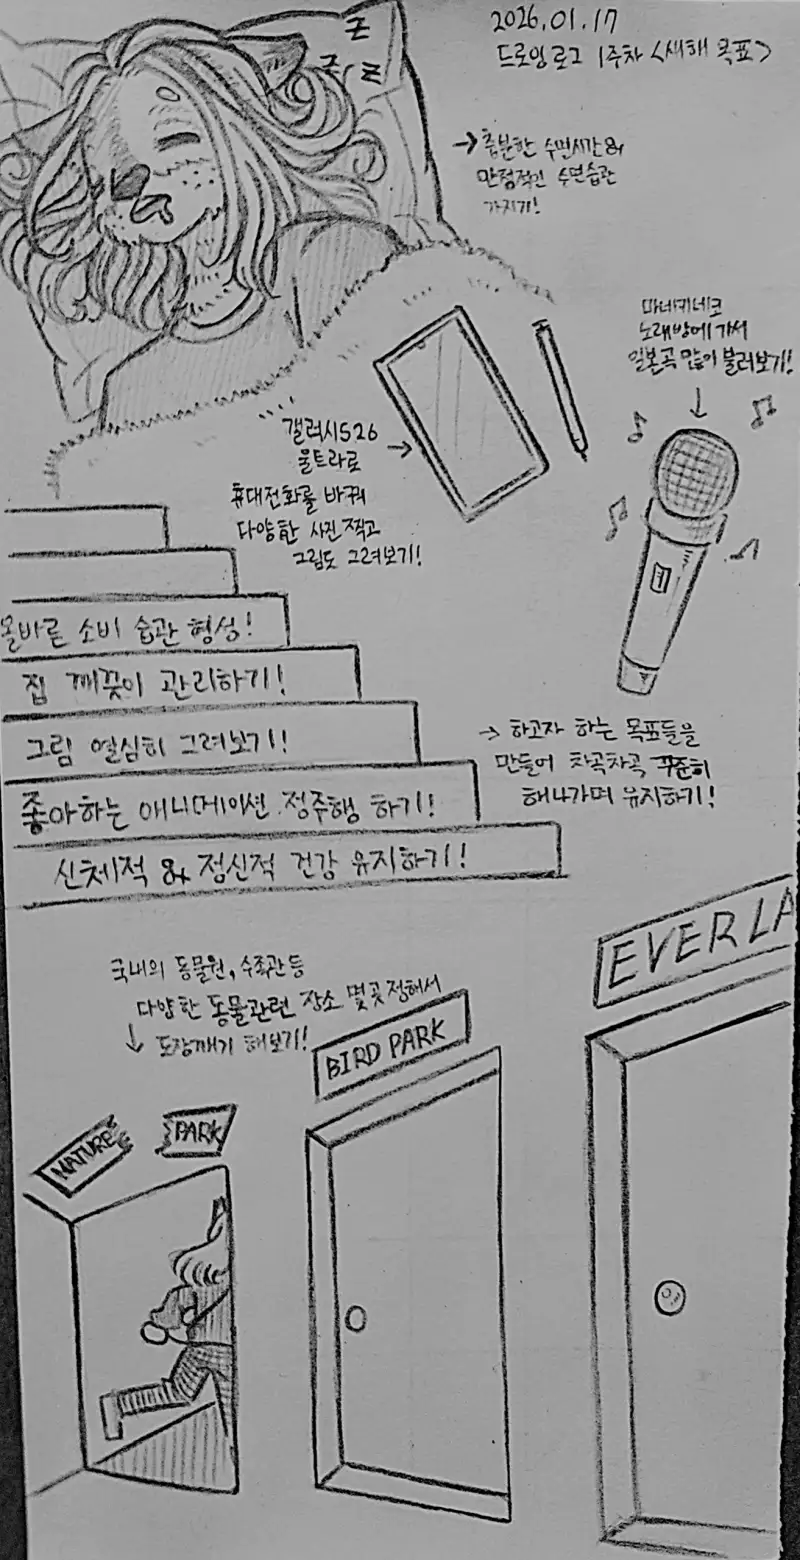 2026.01.17
드로잉로그 1주차 <새해 목표>
Z
Z
Z
→ 충분한 수면시간 &
안정적인 수면습관
가지기!
마네키네코
노래방에 가서
일본곡 많이 불러보기!
갤럭시S26
울트라로
휴대전화를 바꿔
다양한 사진 찍고
그림도 그려보기!
올바른 소비 습관 형성!
집 깨끗이 관리하기!
그림 열심히 그려보기!
좋아하는 애니메이션 정주행 하기!
신체적 & 정신적 건강 유지하기!
→ 하고자 하는 목표들을
만들어 차곡차곡 꾸준히
해나가며 유지하기!
국내의 동물원, 수족관 등
다양한 동물관련 장소 몇곳 정해서
도장깨기 해보기!
NATURE PARK
BIRD PARK
EVERLA